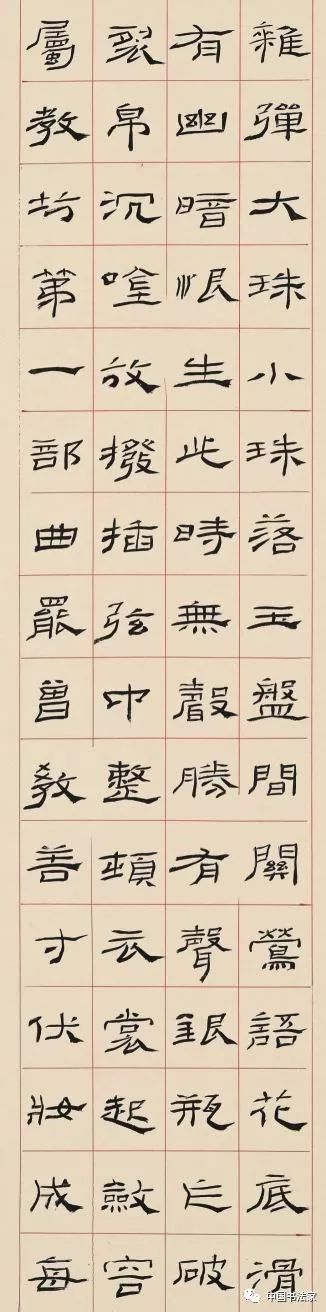 雜彈大珠小珠落玉盤間關鶯語花底滑
有幽暗恨生此時無聲勝有聲銀瓶乍破
裂帛沉唫放撥插弦中整頓衣裳起斂容
屬教坊第一部曲罷曾教善才伏妝成每
中国书法家